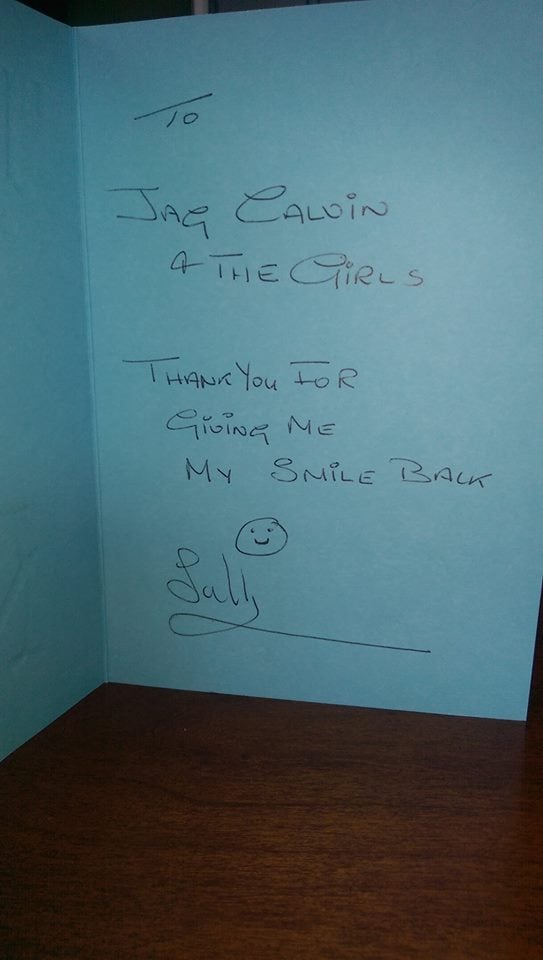 TO
JAG CALVIN
& THE GIRLS
THANK YOU FOR
GIVING ME
MY SMILE BACK
Sally